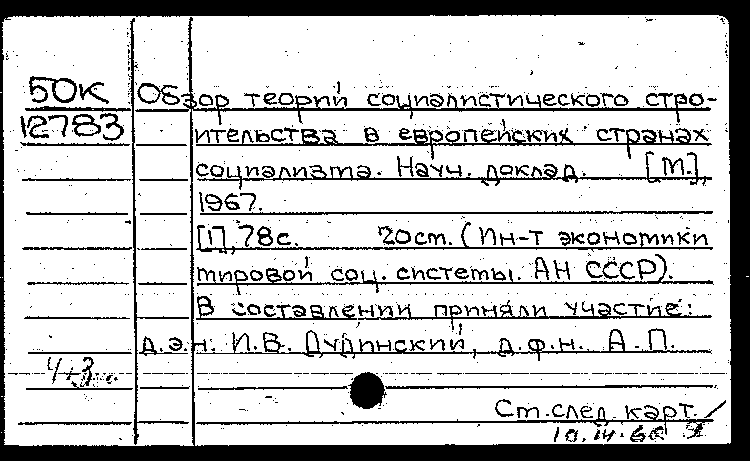 50К Обзор теорий социалистического стро-
12783 ительства в европейских странах
социализма. Науч. доклад. [М.],
1967.
[1], 78с. 20см. (Ин-т экономики
мировой соц. системы. АН СССР).
В составлении приняли участие:
д.э.н. И.В. Дудинский, д.ф.н. А.П.
См. след. карт.